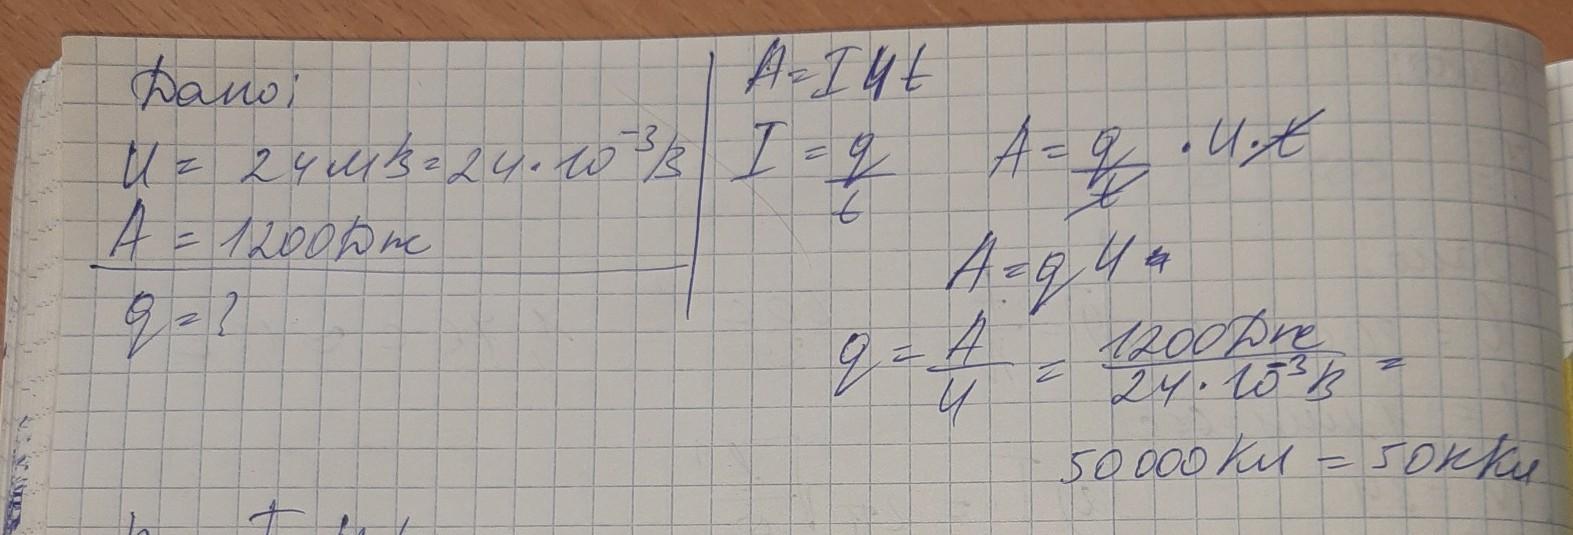 Дано:
U = 24мВ = 24·10⁻³В
A = 1200Дж
q = ?
A = IUt
I = q/t   A = q/t · U · t
A = qU
q = A/U = 1200Дж/24·10⁻³В =
50000 Кл = 50кКл